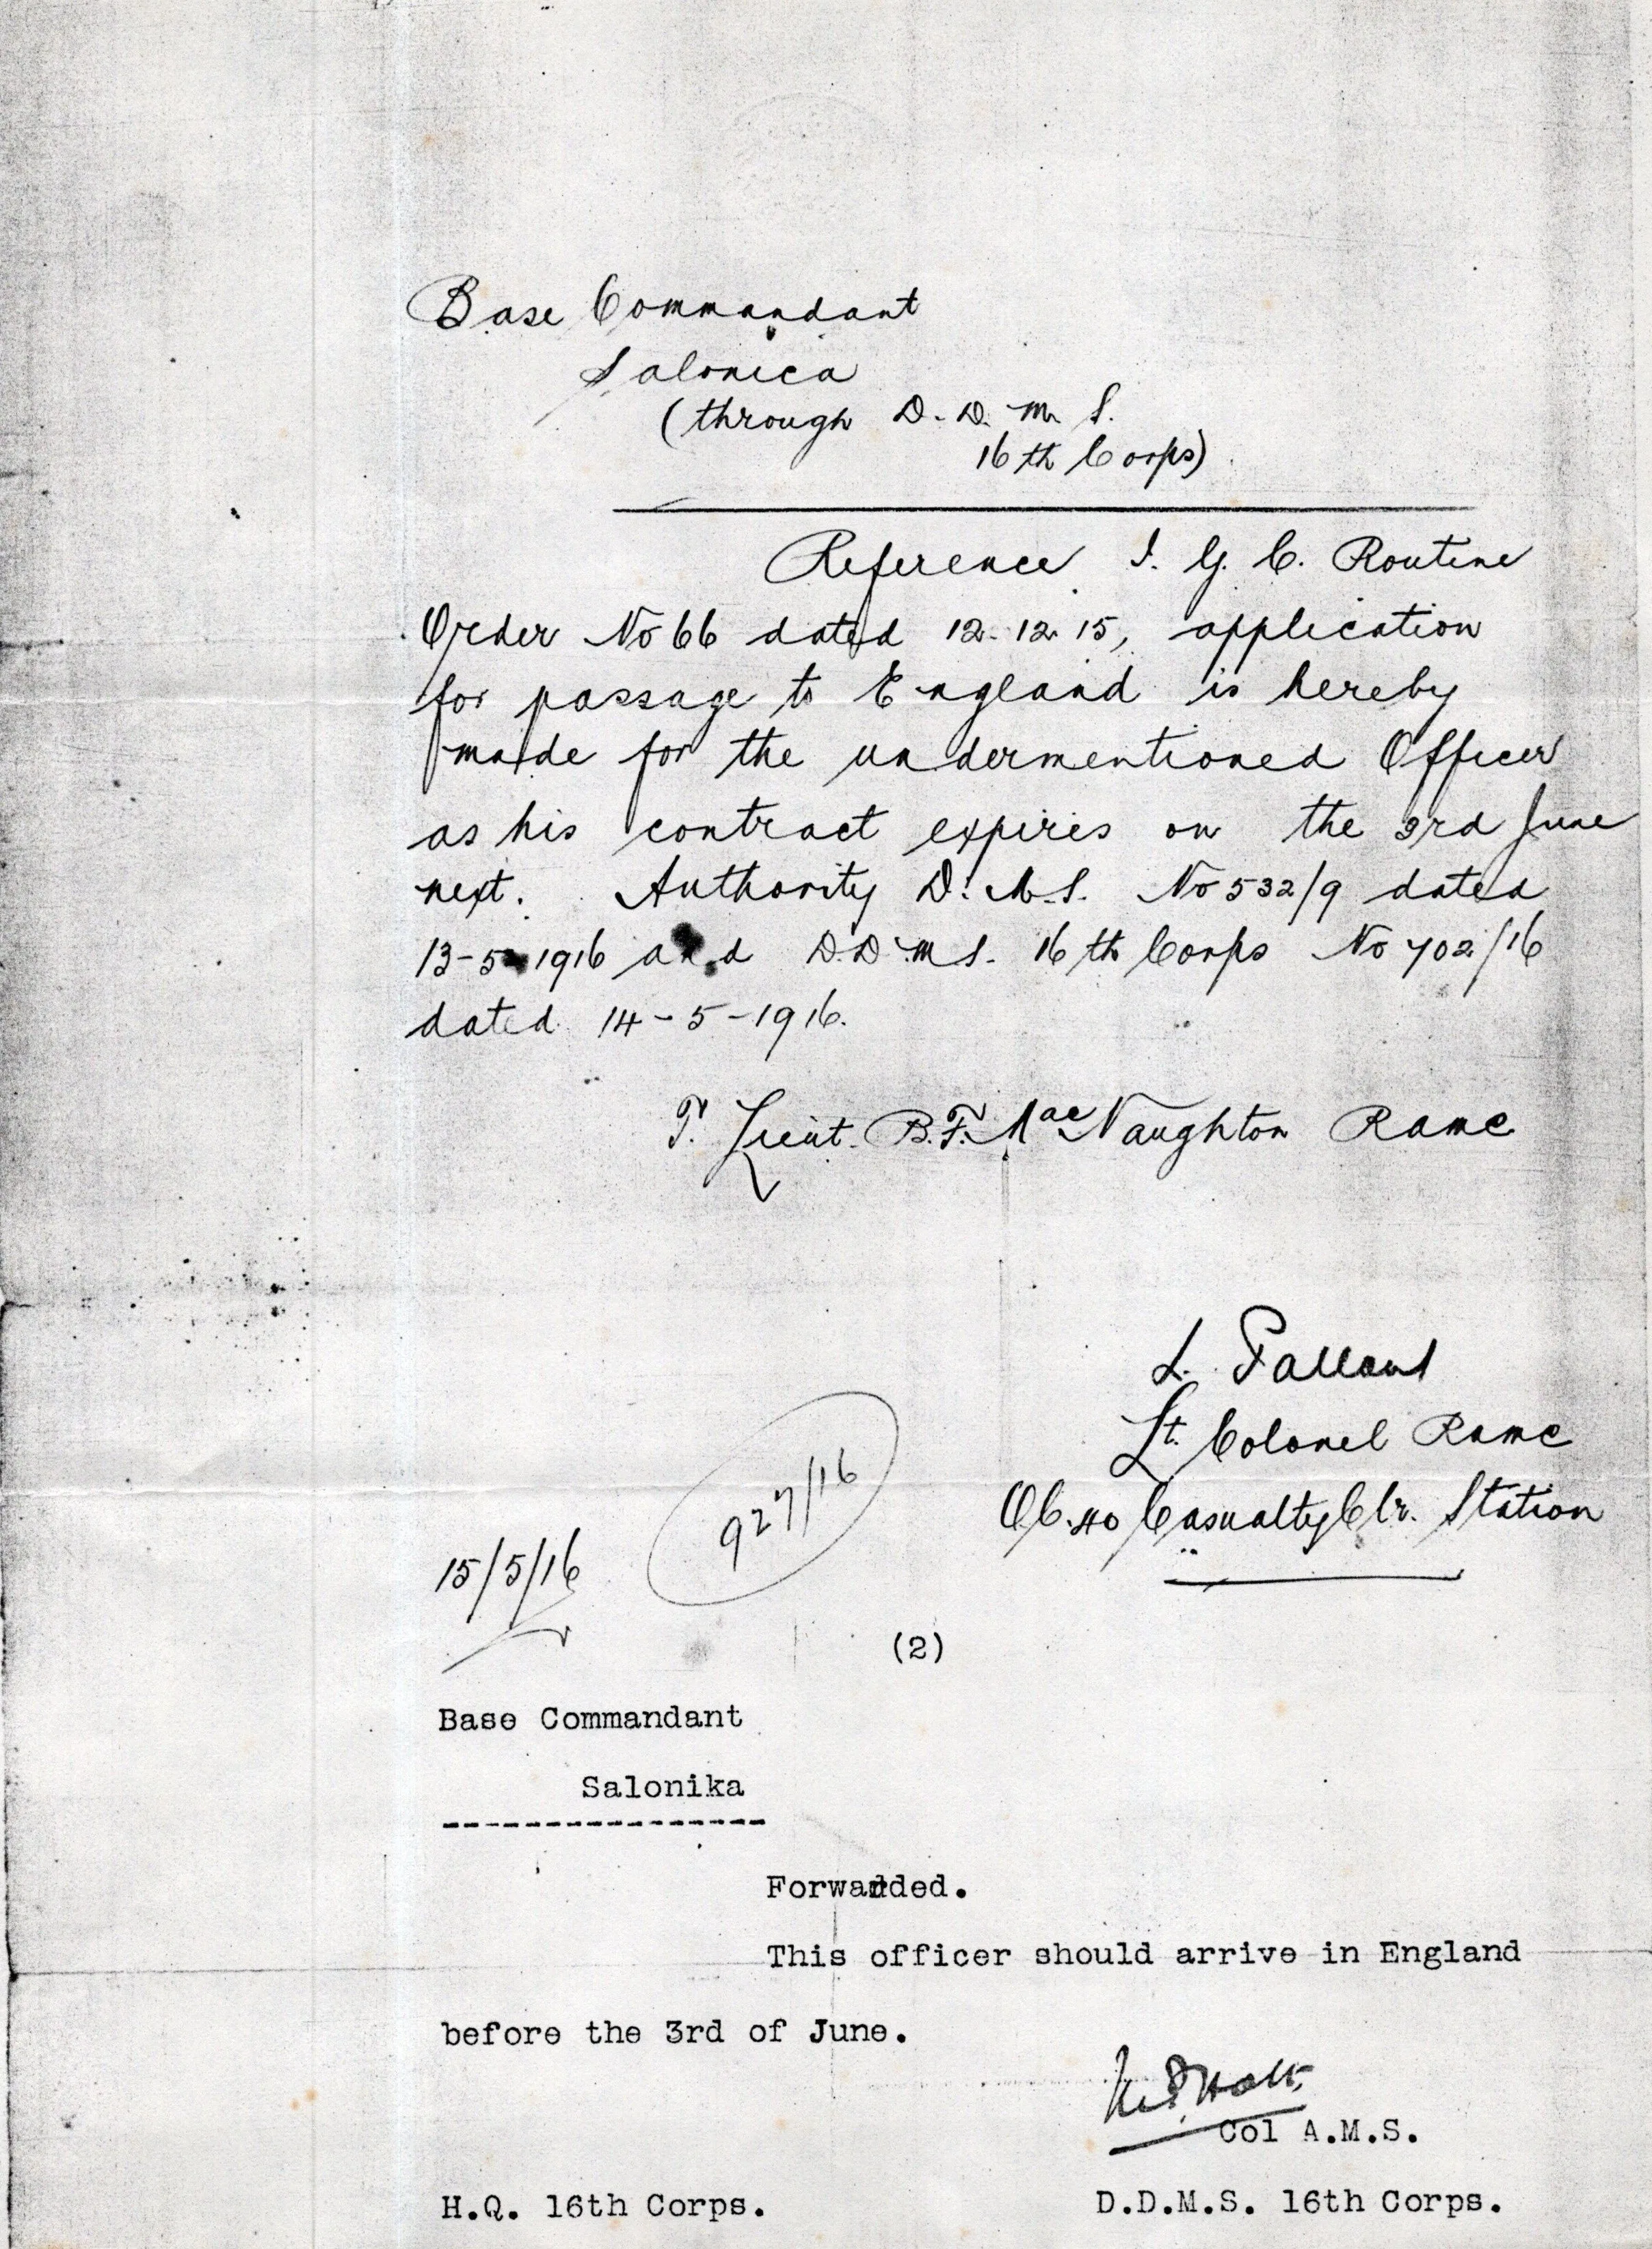 Base Commandant
Salonica
(through D.D.M.S.
16th Corps)
Reference I.G.C. Routine
Order No 66 dated 12.12.15, application
for passage to England is hereby
made for the undermentioned Officer
as his contract expires on the 3rd June
next. Authority D.M.S. No 532/9 dated
13-5-1916 and D.D.M.S. 16th Corps No 702/16
dated 14-5-1916.
T. Lieut. B.F. MacNaughton Ramc
L.
Lt. Colonel Ramc
OC. 40 Casualty Clr. Station
927/16
15/5/16
(2)
Base Commandant
Salonika
----------------
Forwarded.
This officer should arrive in England
before the 3rd of June.
Col A.M.S.
H.Q. 16th Corps. D.D.M.S. 16th Corps.